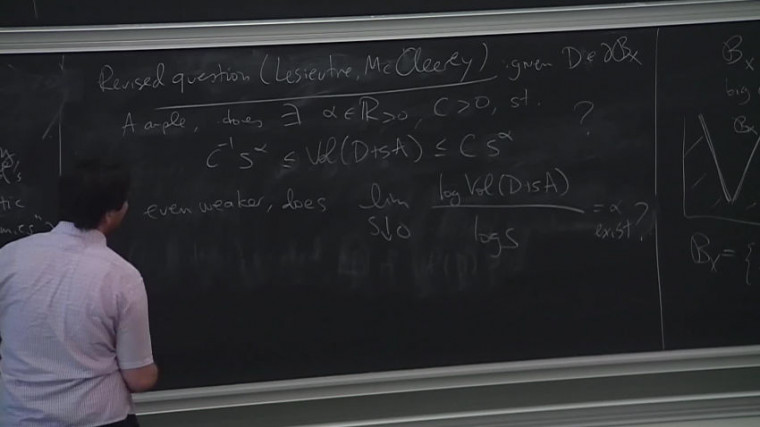 Revised question (Lesieutre, McCleerey) given D ∈ ∂B_X
A ample, does ∃ α ∈ ℝ>0, C>0, st. ?
C⁻¹ s^α ≤ Vol(D+sA) ≤ C s^α
even weaker, does lim_{s↓0} log Vol(D+sA) / log s = α exist?
B_X
big
B_X
B_X = {